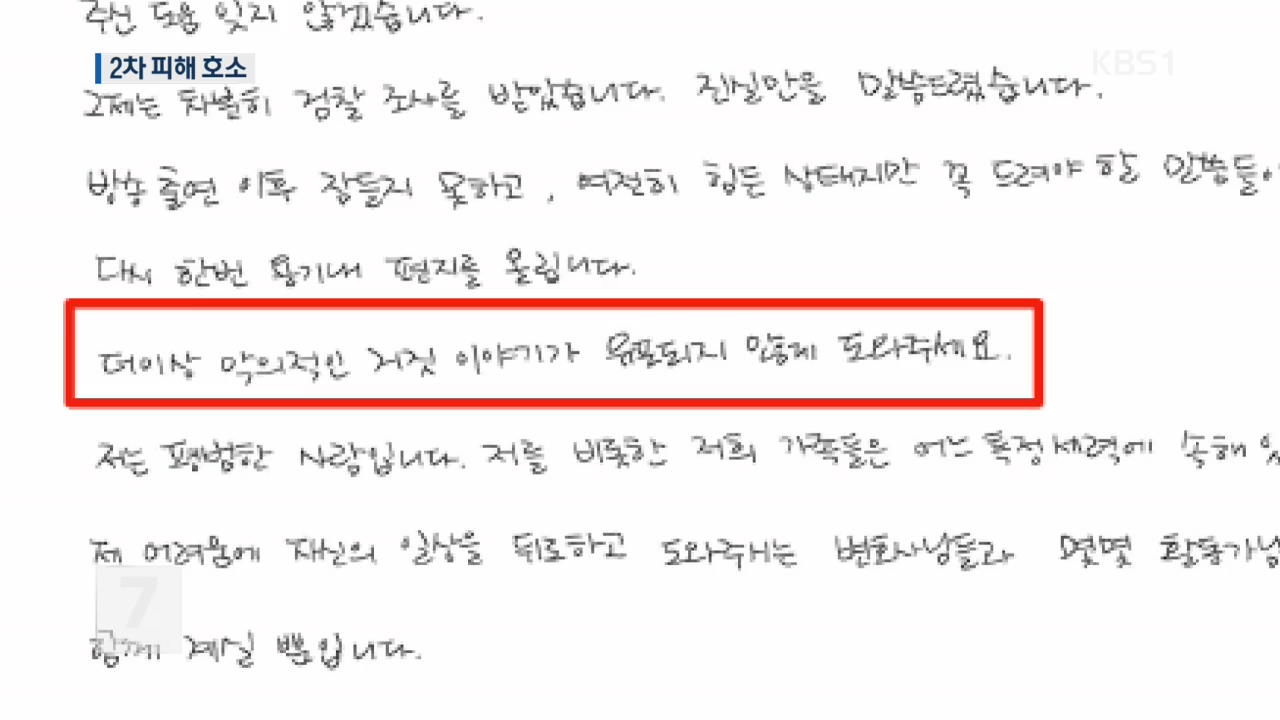 주신 도움 잊지 않겠습니다.
2차 피해 호소
KBS1
그제는 차분히 검찰 조사를 받았습니다. 진실만을 말씀드렸습니다.
방송 출연 이후 잠들지 못하고, 여전히 힘든 상태지만 꼭 드려야 할 말씀들이
다시 한번 용기내 편지를 올립니다.
더이상 악의적인 거짓 이야기가 유포되지 않게 도와주세요.
저는 평범한 사람입니다. 저를 비롯한 저희 가족들은 어느 특정 세력에 속해 있
제 어려움에 자신의 일상을 뒤로하고 도와주시는 변호사님들과 몇몇 활동가님
7
함께 계실 뿐입니다.